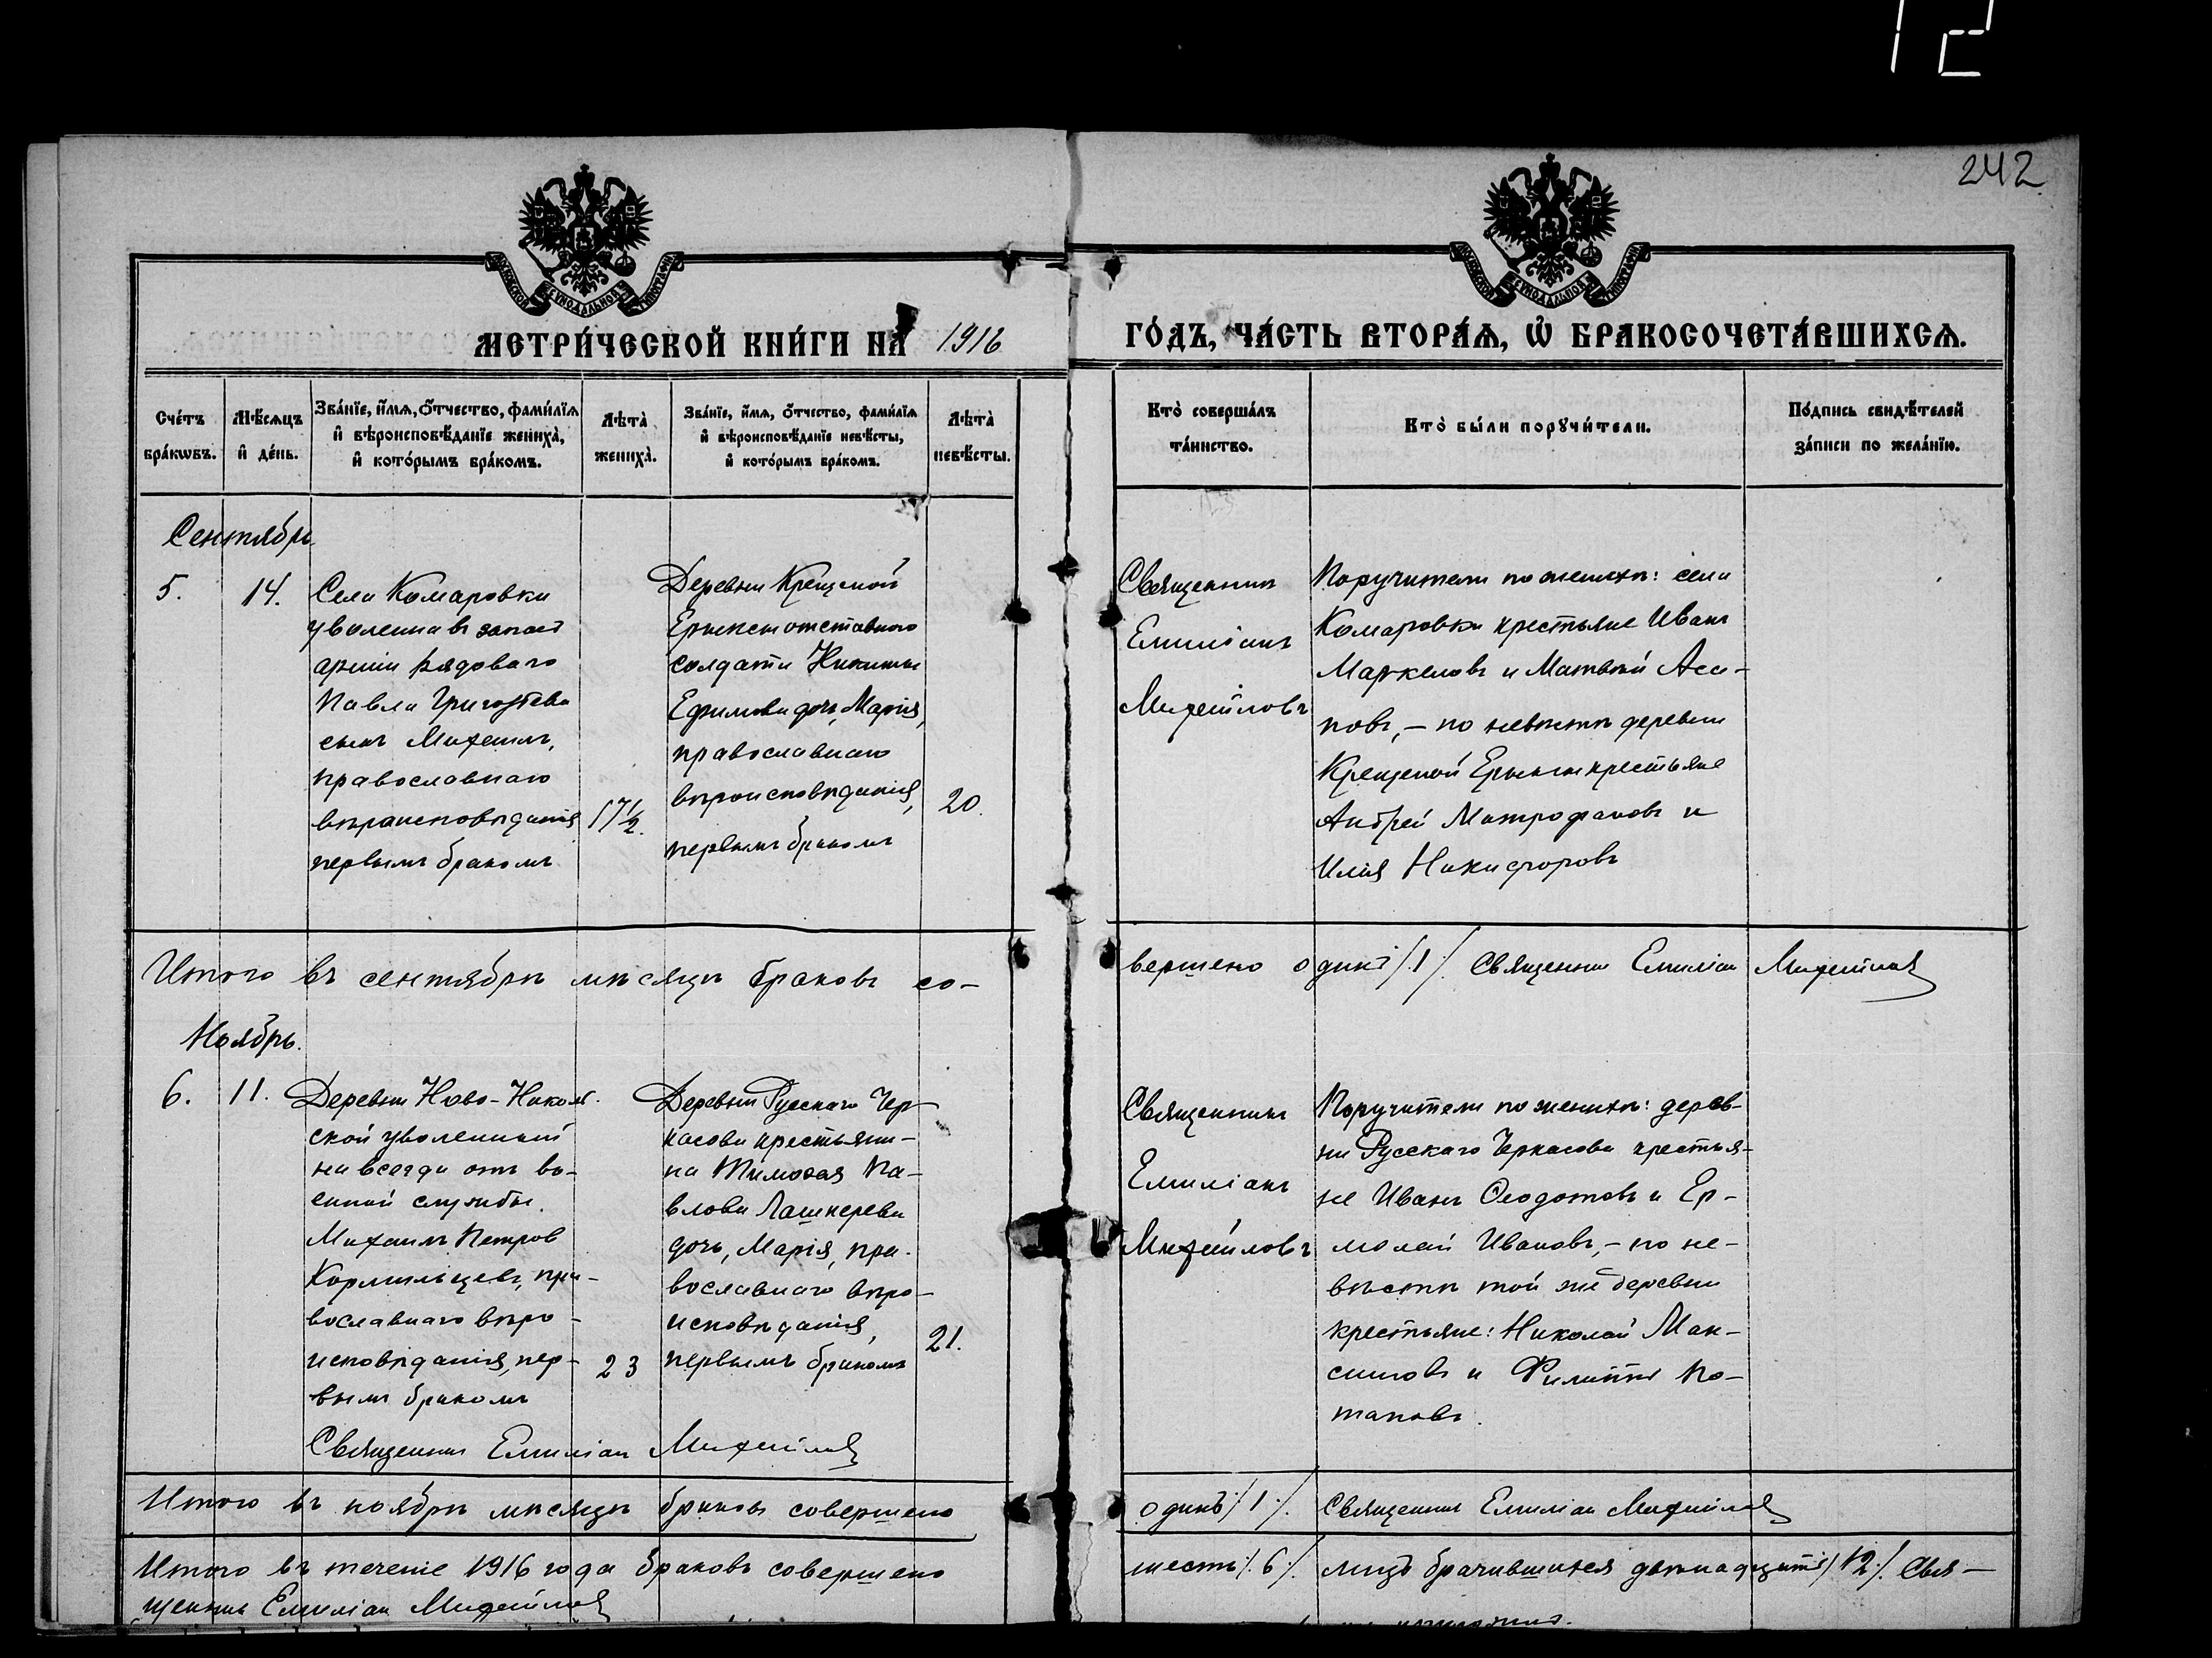 12
242
МОСКОВСКОЙ СѴНОДАЛЬНОЙ ТИПОГРАФІИ
МОСКОВСКОЙ СѴНОДАЛЬНОЙ ТИПОГРАФІИ
МЕТРИ́ЧЕСКОЙ КНИ́ГИ НА 1916
ГО́ДЪ, ЧА́СТЬ ВТОРА́Ѧ, Ѽ БРАКОСОЧЕТА́ВШИХСѦ.
Сче́тъ бра́кѡвъ.
Мѣ́сѧцъ и де́нь.
Зва́нїе, и́мѧ, ѻ́тчество, фами́лїѧ
и вѣроисповѣ́данїе жениха̀,
и кото́рымъ бра́комъ.
Лѣта̀ жениха̀.
Зва́нїе, и́мѧ, ѻ́тчество, фами́лїѧ
и вѣроисповѣ́данїе невѣ́сты,
и кото́рымъ бра́комъ.
Лѣта̀ невѣ́сты.
Кто̀ соверша́лъ
та́инство.
Кто̀ бы́ли порꙋчи́тели.
По́дпись свидѣ́телей
за́писи по жела́нїю.
Сентябрь.
5.
14.
Села Комаровки
уволенна въ запас
арміи рядоваго
Павла Григорьева
сынъ Михаилъ,
православнаго
вѣроисповѣданія
первымъ бракомъ
17½.
Деревни Крещеной
Ерыклы отставного
солдата Никиты
Ефимова дочь, Марія,
православнаго
вѣроисповѣданія,
первымъ бракомъ
20.
Священникъ
Емиліанъ
Михайловъ
Поручители по женихѣ: села
Комаровки крестьяне Иванъ
Маркеловъ и Матвѣй Аси-
повъ, – по невѣстѣ деревни
Крещеной Ерыклы крестьяне
Андрей Митрофановъ и
Илія Никифоровъ
Итого въ сентябрѣ мѣсяцѣ браковъ со-
вершено одинъ /1/. Священникъ Емиліан Михайлов
Ноябрь.
6.
11.
Деревни Ново-Никол.
ской уволенный
навсегда отъ во-
енной службы.
Михаилъ Петров
Кормильцевъ, пра-
вославнаго вѣро-
исповѣданія, пер-
вымъ бракомъ
23
Деревни Русскаго Чер-
касова крестьяни-
на Тимоѳея Па-
влова Лашкерева
дочь, Марія, пра-
вославнаго вѣро-
исповѣданія,
первымъ бракомъ
21.
Священникъ
Емиліанъ
Михайловъ
Поручители по женихѣ: дерев-
ни Русскаго Черкасова крестья-
не Иванъ Ѳеодотовъ и Ер-
молай Ивановъ, – по не-
вѣстѣ той же деревни
крестьяне: Николай Мак-
симовъ и Филиппъ По-
таповъ.
Священник Емиліан Михайлов
Итого въ ноябрѣ мѣсяцѣ браковъ совершено
одинъ /1/. Священник Емиліан Михайлов
Итого въ теченіе 1916 года браковъ совершено
шесть /6/. лицъ брачившихся двѣнадцать /12/. Свя-
щенник Емиліан Михайлов